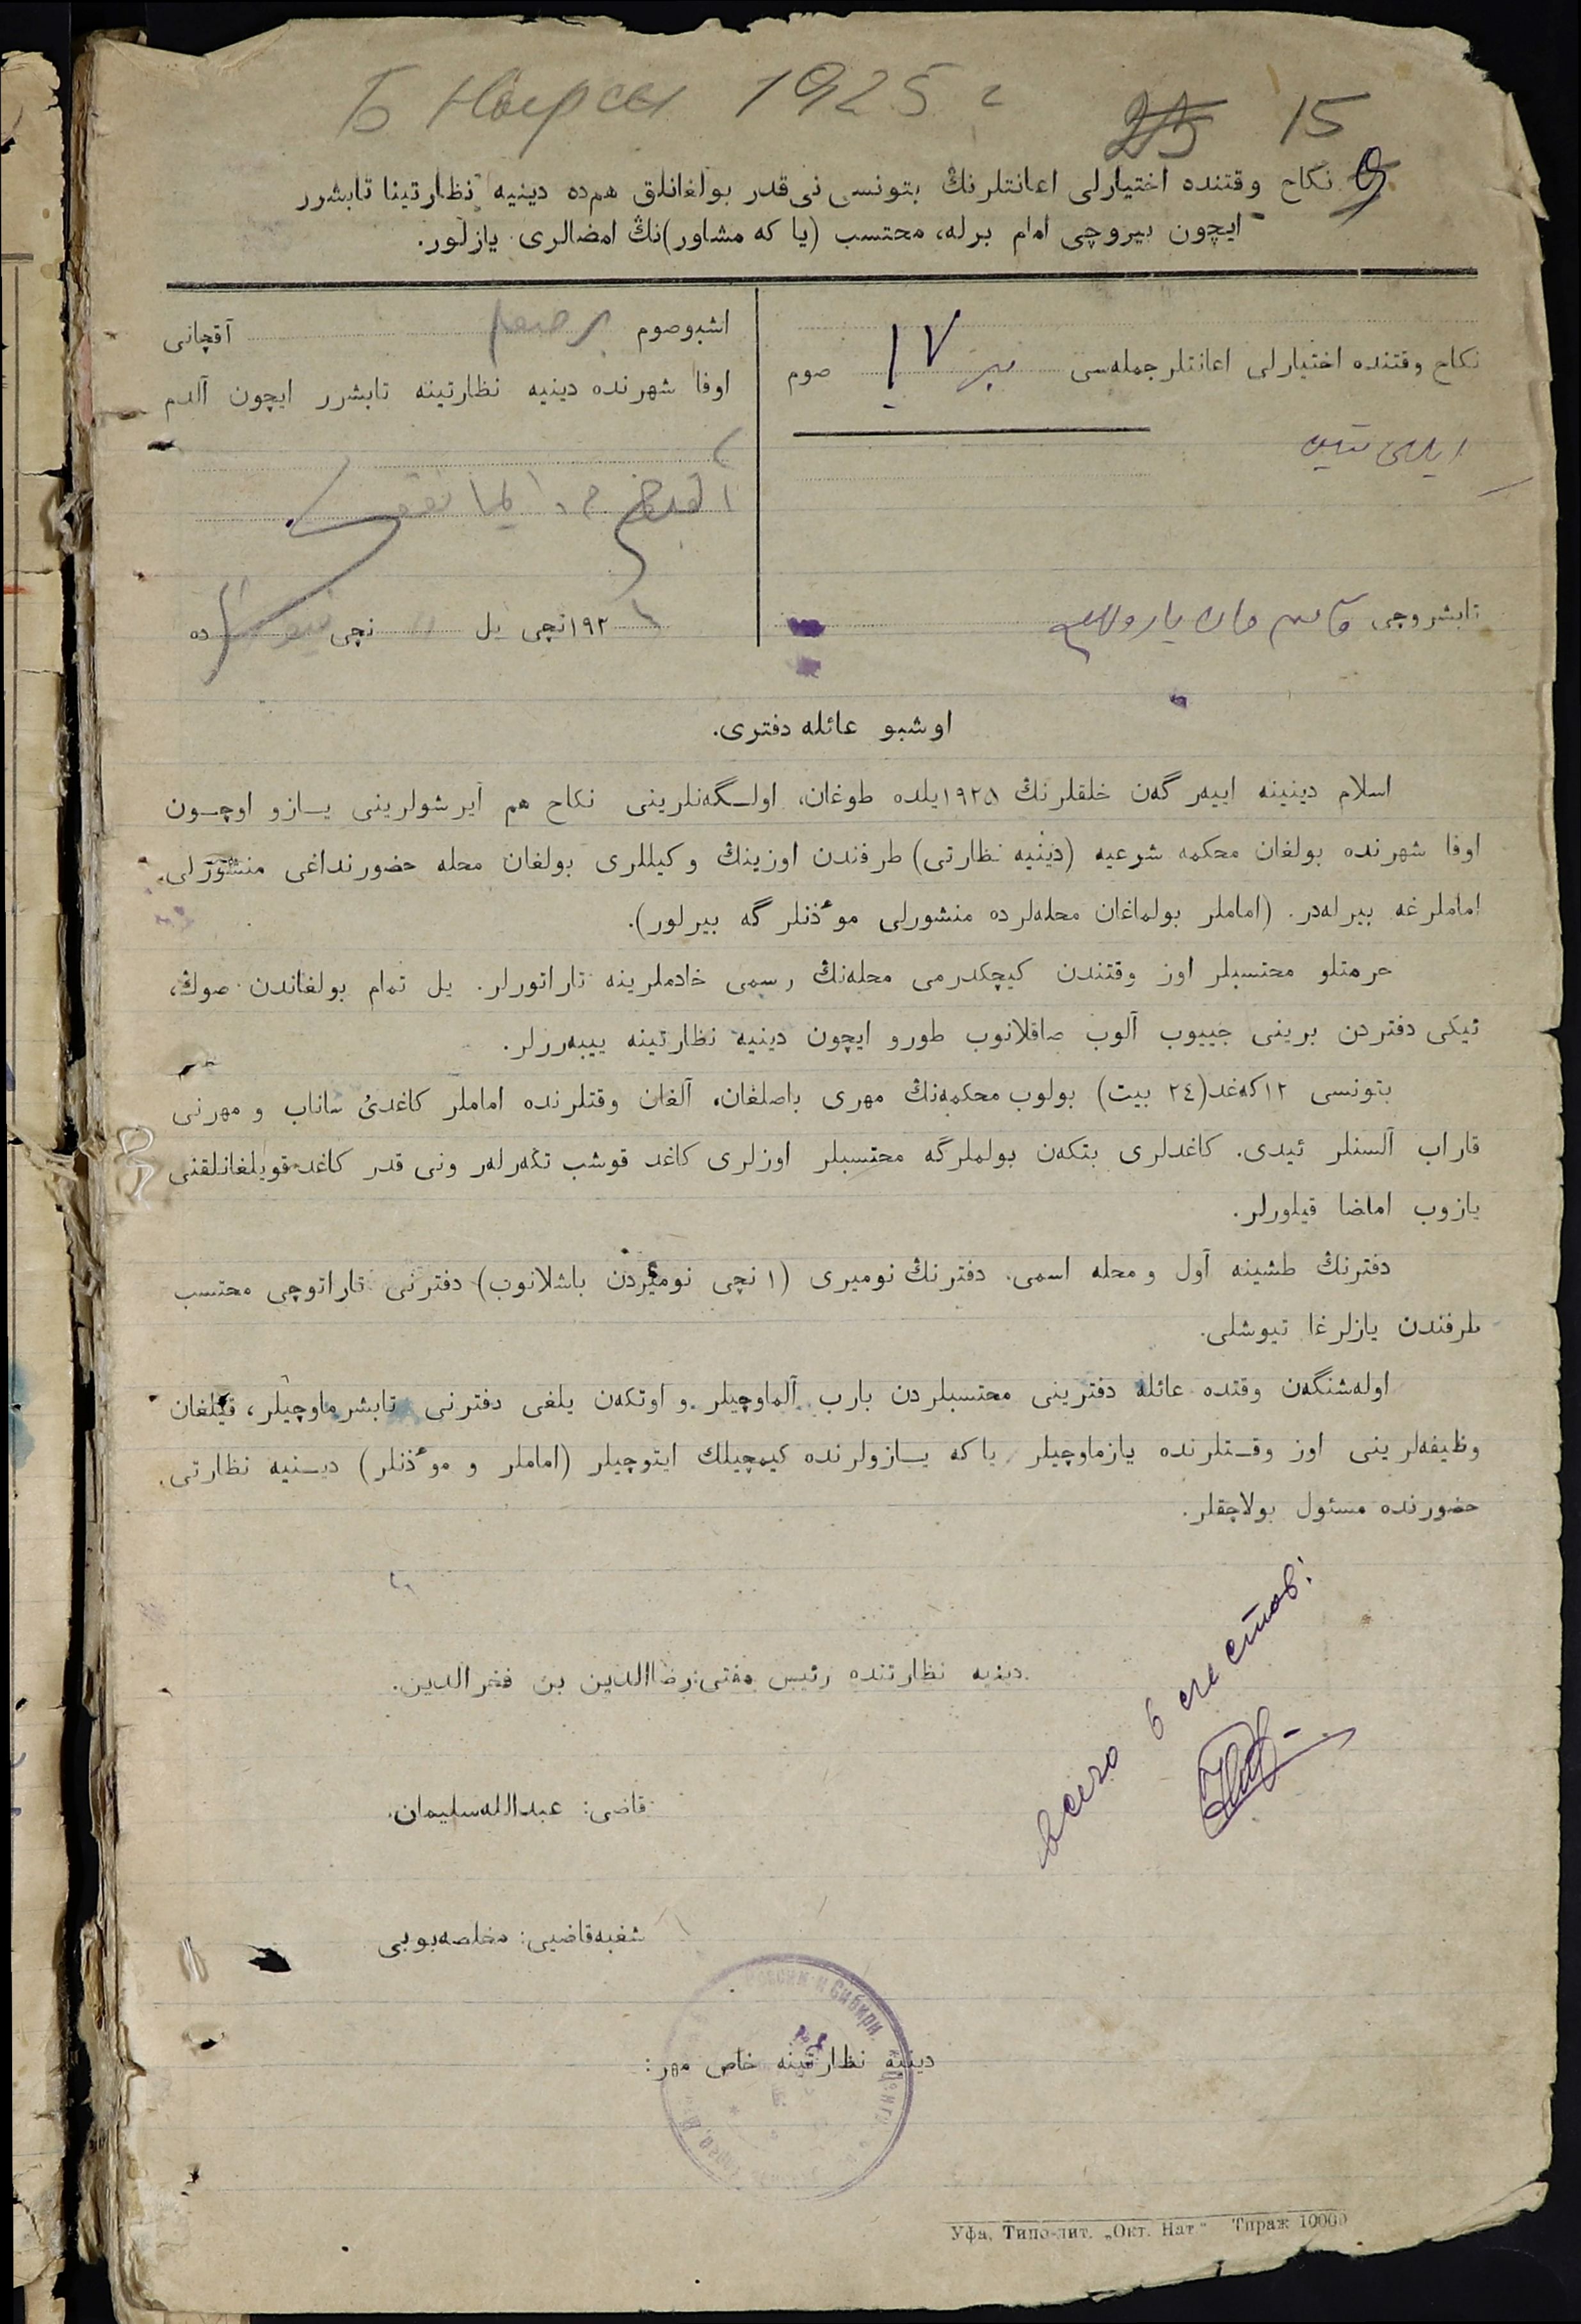 1925 г
25 15
نكاح وقتنده اختيارلی اعانتلرنڭ بتونسی نی قدر بولغانلق هم‌ده دينيه نظارتينا تابشرر
ايچون بيروچی امام برله، محتسب (يا كه مشاور)نڭ امضالری يازلور.
نكاح وقتنده اختيارلی اعانتلر جمله‌سی ١٧ صوم
تابشروچی
اشبو صوم آقچانی
اوفا شهرنده دينيه نظارتينه تابشرر ايچون آلدم
١٩٢ نچی يل نچی ده
اوشبو عائله دفتری.
اسلام دينينه اييه‌رگه‌ن خلقلرنڭ ١٩٢٥يلده طوغان، اولـگه‌نلرينی نكاح هم آيرشولرينی يــازو اوچــون
اوفا شهرنده بولغان محكمه شرعيه (دينيه نظارتی) طرفندن اوزينڭ وكيللری بولغان محله حضورنداغی منشورلی
امام‌لرغه بيرله‌در. (اماملر بولماغان محله‌لرده منشورلی موءذنلرگه بيرلور).
حرمتلو محتسبلر اوز وقتندن كيچكدرمی محله‌نڭ رسمی خادملرينه تاراتورلر. يل تمام بولغاندن صوڭ،
ئيكی دفتردن برينی جييوب آلوب صاقلانوب طورو ايچون دينيه نظارتينه ييبه‌ررلر.
بتونسی ١٢كه‌غد(٢٤ بيت) بولوب محكمه‌نڭ مهری باصلغان. آلغان وقتلرنده اماملر كاغدئ ساناب و مهرنی
قاراب آلسنلر ئيدی. كاغدلری بتكه‌ن بولملرگه محتسبلر اوزلری كاغد قوشب تكه‌رله‌ر ونی قدر كاغد قويلغانلقنی
يازوب امضا قيلورلر.
دفترنڭ طشينه آول و محله اسمی. دفترنڭ نوميری (١ نچی نوميردن باشلانوب) دفترنی تاراتوچی محتسب
طرفندن يازلرغا تيوشلی.
اوله‌شنگه‌ن وقتده عائله دفترينی محتسبلردن بارب آلماوچيلر و اوتكه‌ن يلغی دفترنی تابشرماوچيلر، قيلغان
وظيفه‌لرينی اوز وقـتلرنده يازماوچيلر ياكه يــازولرنده كيمچيلك ايتوچيلر (اماملر و موءذنلر) ديـنيه نظارتی
حضورنده مسئول بولاچقلر.
всего 6 листов.
دينيه نظارتنده رئيس مفتی: رضاالدين بن فخرالدين.
قاضی: عبدالله سليمان.
شغبه قاضيی: مخلصه بوبی
России и Сибири.
دينيه نظارتينه خاص مهر:
Уфа, Типо-лит. „Окт. Нат“ Тираж 10000